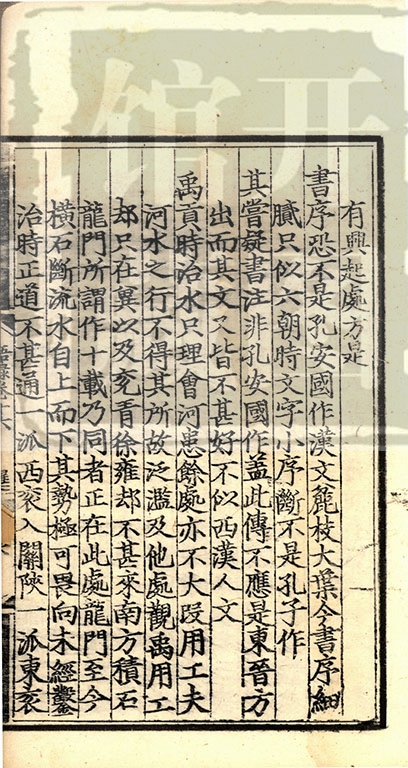 有興起處方是
書序恐不是孔安國作漢文麄枝大葉今書序細
膩只似六朝時文字小序斷不是孔子作
其嘗疑書注非孔安國作葢此傳不應是東晉方
出而其文又皆不甚好不似西漢人文
禹貢時治水只理會河患餘處亦不大段用工夫
河水之行不得其所故泛濫及他處觀禹用工
却只在兾以及兖青徐雍却不甚來南方積石
龍門所謂作十載乃同者正在此處龍門至今
橫石斷流水自上而下其勢極可畏向未經鑿
治時正道不甚通一派西衮入關陝一派東衮
語錄卷十六